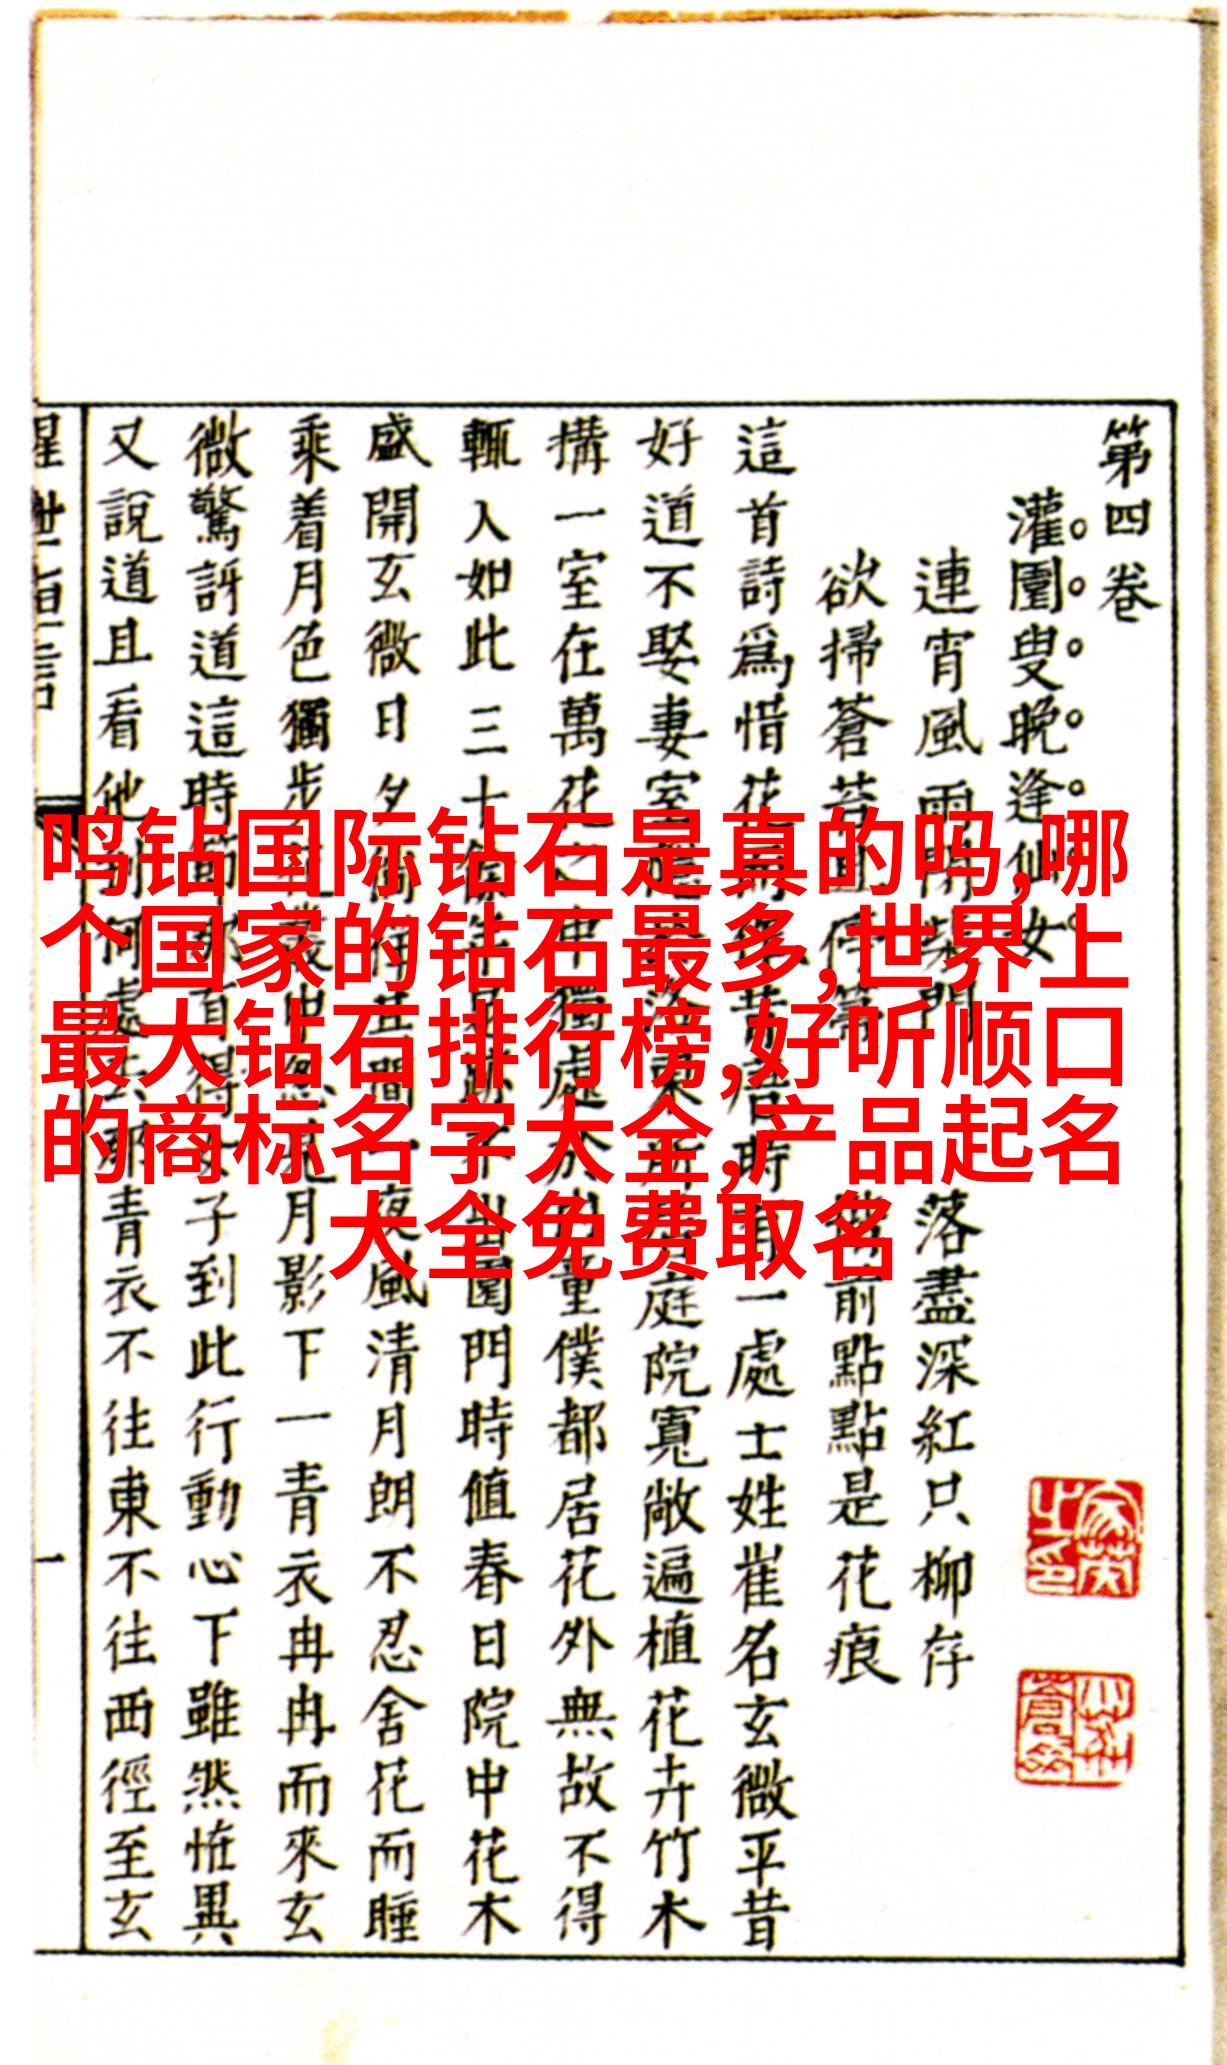 第四卷
灌園叟晚逢仙女
連宵風雨閉柴門 落盡深紅只柳存
欲掃蒼苔且停箒 階前點點是花痕
這首詩爲惜花昔唐時有一處士姓崔名玄微平昔
好道不娶妻室洛東所居庭院寬敞遍植花卉竹木
搆一室在萬花之中獨處於童僕都居花外無故不得
輒入如此三十餘年足跡不出園門時值春日院中花木
盛開玄微日夕徜徉其間一夜風清月朗不忍舍花而睡
乘着月色獨步花叢中忽見月影下一青衣冉冉而來玄
微驚訝道這時節那有得女子到此行動心下雖然怪異
又說道且看他到何處去那青衣不往東不往西徑至玄
一
鸣钻国际钻石是真的吗,哪
个国家的钻石最多,世界上
最大钻石排行榜,好听顺口
的商标名字大全,产品起名
大全免费取名